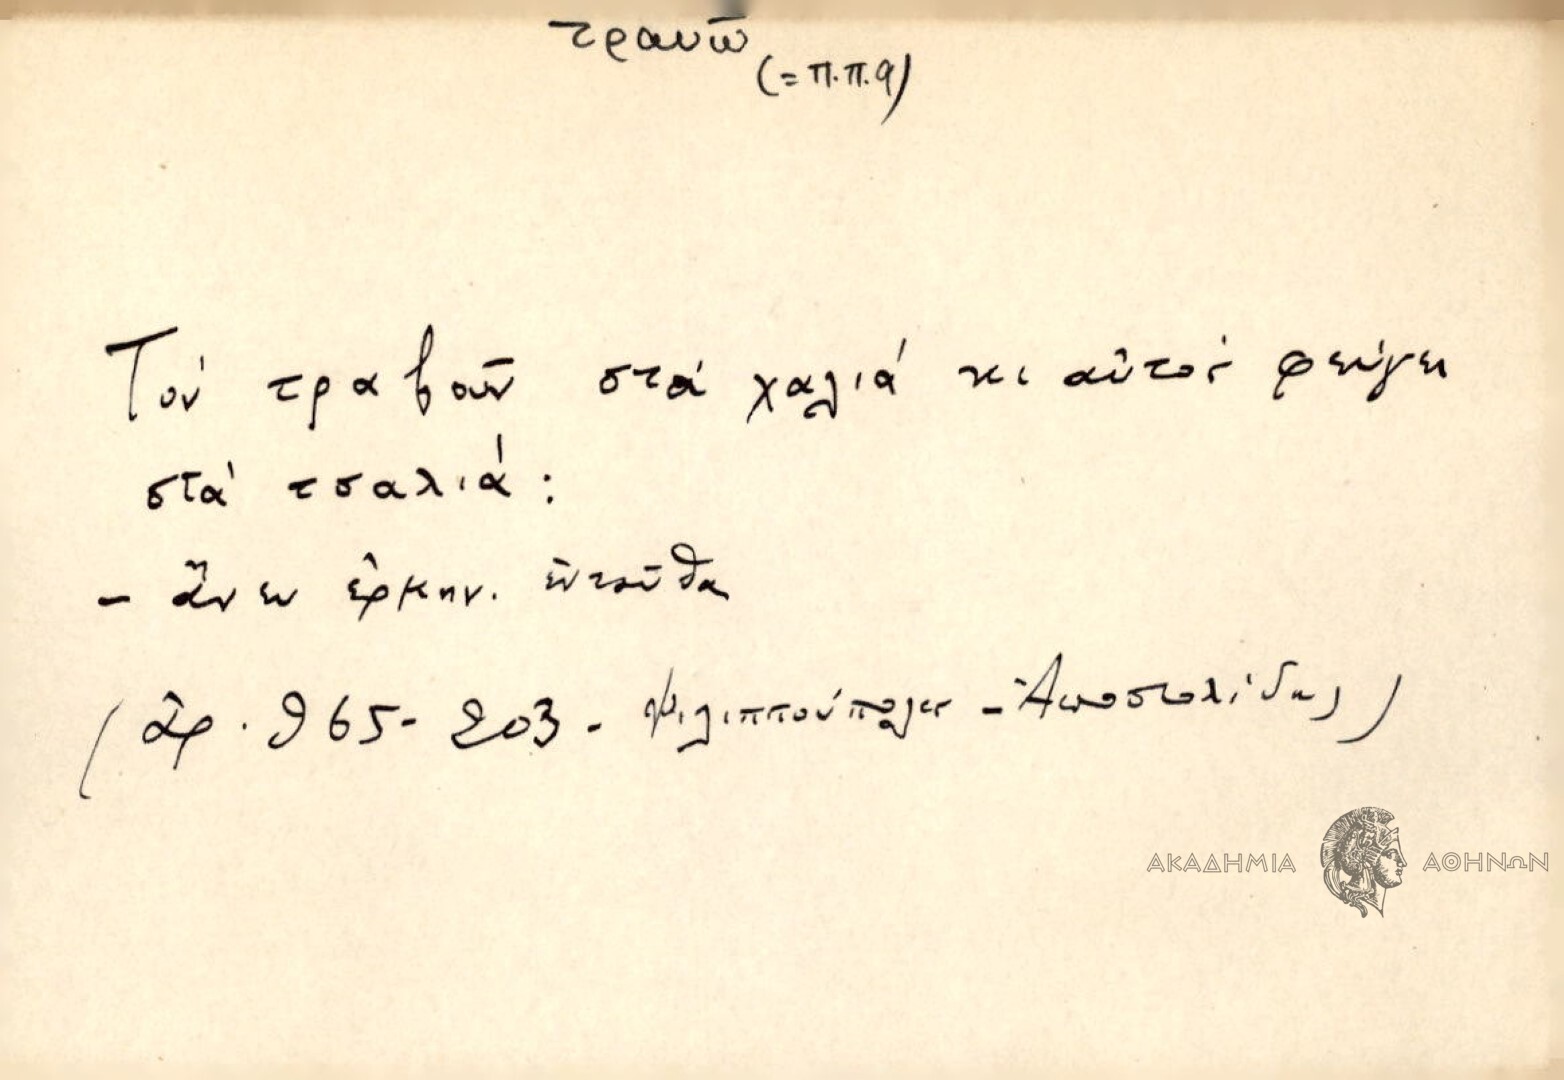 τραυῶ
(= π.π.α)
Τόν τραβοῦν στά χαλιά κι αὐτός φεύγει
στά τσαλιά :
- ἄνευ ἑρμην. ἐνταῦθα
(ἀρ. 965 - 203 - Φιλιππούπολις - Ἀποστολίδης)
ΑΚΑΔΗΜΙΑ ΑΘΗΝΩΝ